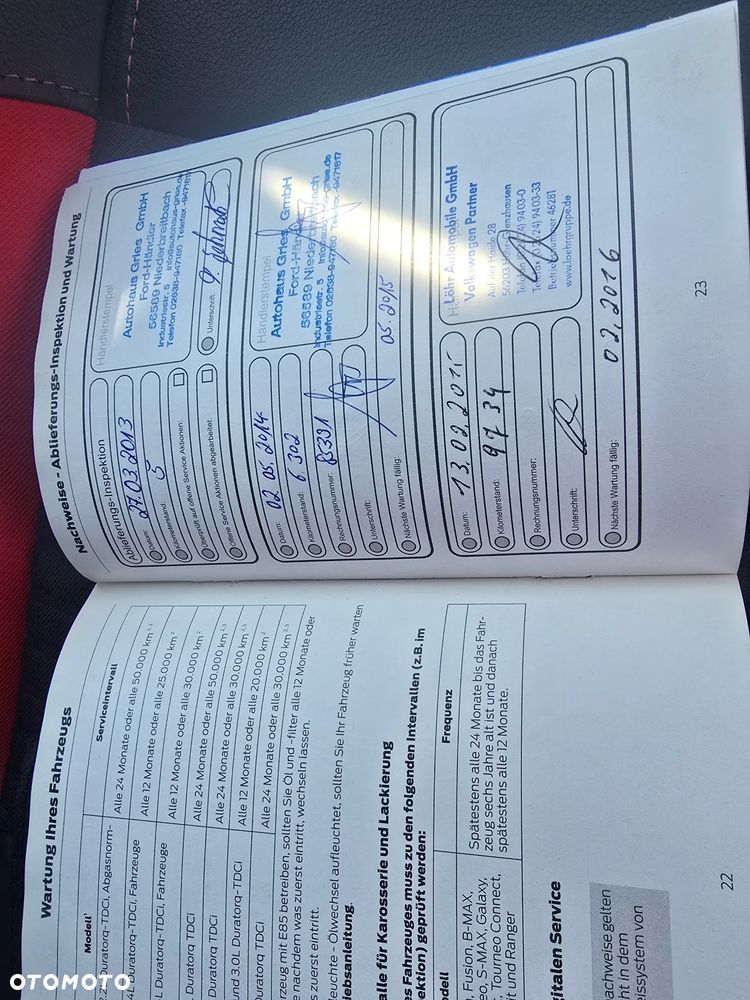 Wartung Ihres Fahrzeugs
Modell¹ Serviceintervall
Duratorq-TDCi, Abgasnorm- Alle 24 Monate oder alle 50.000 km ²,³
Duratorq-TDCi, Fahrzeuge Alle 12 Monate oder alle 25.000 km ²
Duratorq-TDCi, Fahrzeuge Alle 12 Monate oder alle 30.000 km ²
Duratorq TDCi Alle 24 Monate oder alle 50.000 km ²,³
Duratorq TDCi Alle 24 Monate oder alle 30.000 km ²,³
und 3.0L Duratorq-TDCi Alle 12 Monate oder alle 20.000 km ²
Duratorq TDCi Alle 24 Monate oder alle 30.000 km ²,³
rzeug mit E85 betreiben, sollten Sie Öl und -filter alle 12 Monate oder
e nachdem was zuerst eintritt, wechseln lassen.
s zuerst eintritt.
leuchte - Ölwechsel aufleuchtet, sollten Sie Ihr Fahrzeug früher warten
iebsanleitung.
alle für Karosserie und Lackierung
es Fahrzeuges muss zu den folgenden Intervallen (z.B. im
ektion) geprüft werden:
odell Frequenz
, Fusion, B-MAX,
eo, S-MAX, Galaxy,
, Tourneo Connect,
ft und Ranger
Spätestens alle 24 Monate bis das Fahr-
zeug sechs Jahre alt ist und danach
spätestens alle 12 Monate.
gitalen Service
achweise gelten
ht in dem
eissystem von
22
Nachweise - Ablieferungs-Inspektion und Wartung
Ablieferungs-Inspektion
Datum: 27.03.2013
Kilometerstand: 5
Überprüft auf offene Service Aktionen:
Offene Service Aktionen abgearbeitet:
Händlerstempel
Autohaus Gries GmbH
Ford-Händler
56589 Niederbreitbach
Industriestr. 5 info@autohaus-gries.de
Telefon 02638-947180 Telefax -9471817
Unterschrift:
Datum: 02.05.2014
Kilometerstand: 6.302
Rechnungsnummer: 83391
Unterschrift:
Nächste Wartung fällig: 05.2015
Händlerstempel
Autohaus Gries GmbH
Ford-Händler
56589 Niederbreitbach
Industriestr. 5
Telefon 02638-947180 Telefax -9471817
Datum: 13.02.201
Kilometerstand: 9734
Rechnungsnummer:
Unterschrift:
Nächste Wartung fällig: 02.2016
Löhr Automobile GmbH
Volkswagen Partner
Auf der Heide 28
Betriebsnummer 46281
www.loehrgruppe.de
23
OTOMOTO